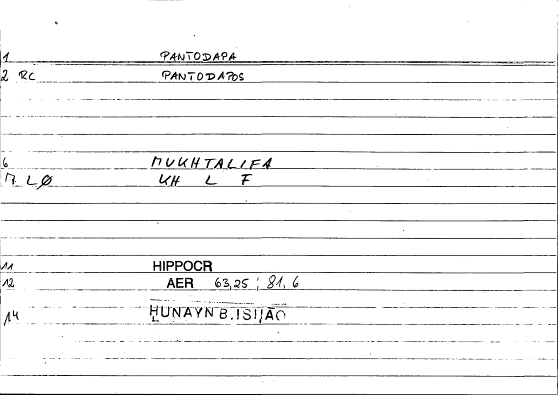 1 PANTODAPA
2 RC PANTODAPOS
6 MUKHTALIFA
7 LØ KH L F
11 HIPPOCR
12 AER 63,25 ; 81,6
14 ḤUNAYN B.ISḤĀQ